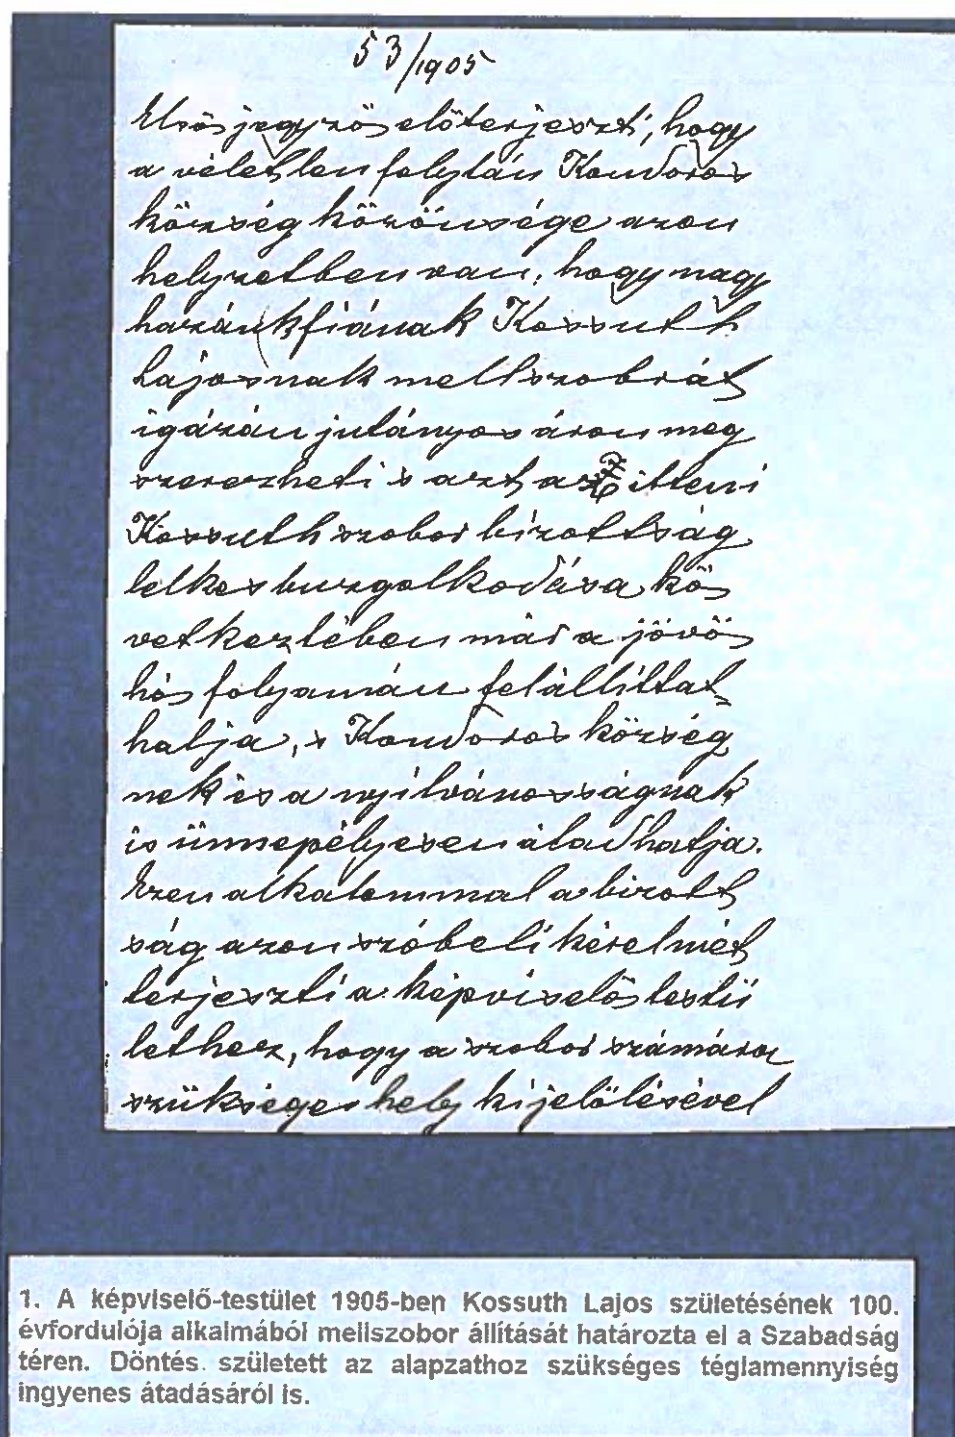 53/1905
Elsőjegyző előterjeszti, hogy
a véletlen folytán Kondoros
község közönsége azon
helyzetben van, hogy nagy
hazánkfiának Kossuth
Lajosnak mellszobrát
igazán jutányos áron meg
szerezheti s azt az itteni
Kossuth szobor bizottság
lelkes buzgolkodása kö
vetkeztében már a jövő
hó folyamán felállíttat
hatja, s Kondoros község
nek és a nyilvánosságnak
is ünnepélyesen átadhatja.
Ezen alkalommal a bizott
ság azon szóbeli kérelmét
terjeszti a képviselő testü
lethez, hogy a szobor számára
szükséges hely kijelölésével
1. A képviselő-testület 1905-ben Kossuth Lajos születésének 100.
évfordulója alkalmából mellszobor állítását határozta el a Szabadság
téren. Döntés született az alapzathoz szükséges téglamennyiség
ingyenes átadásáról is.